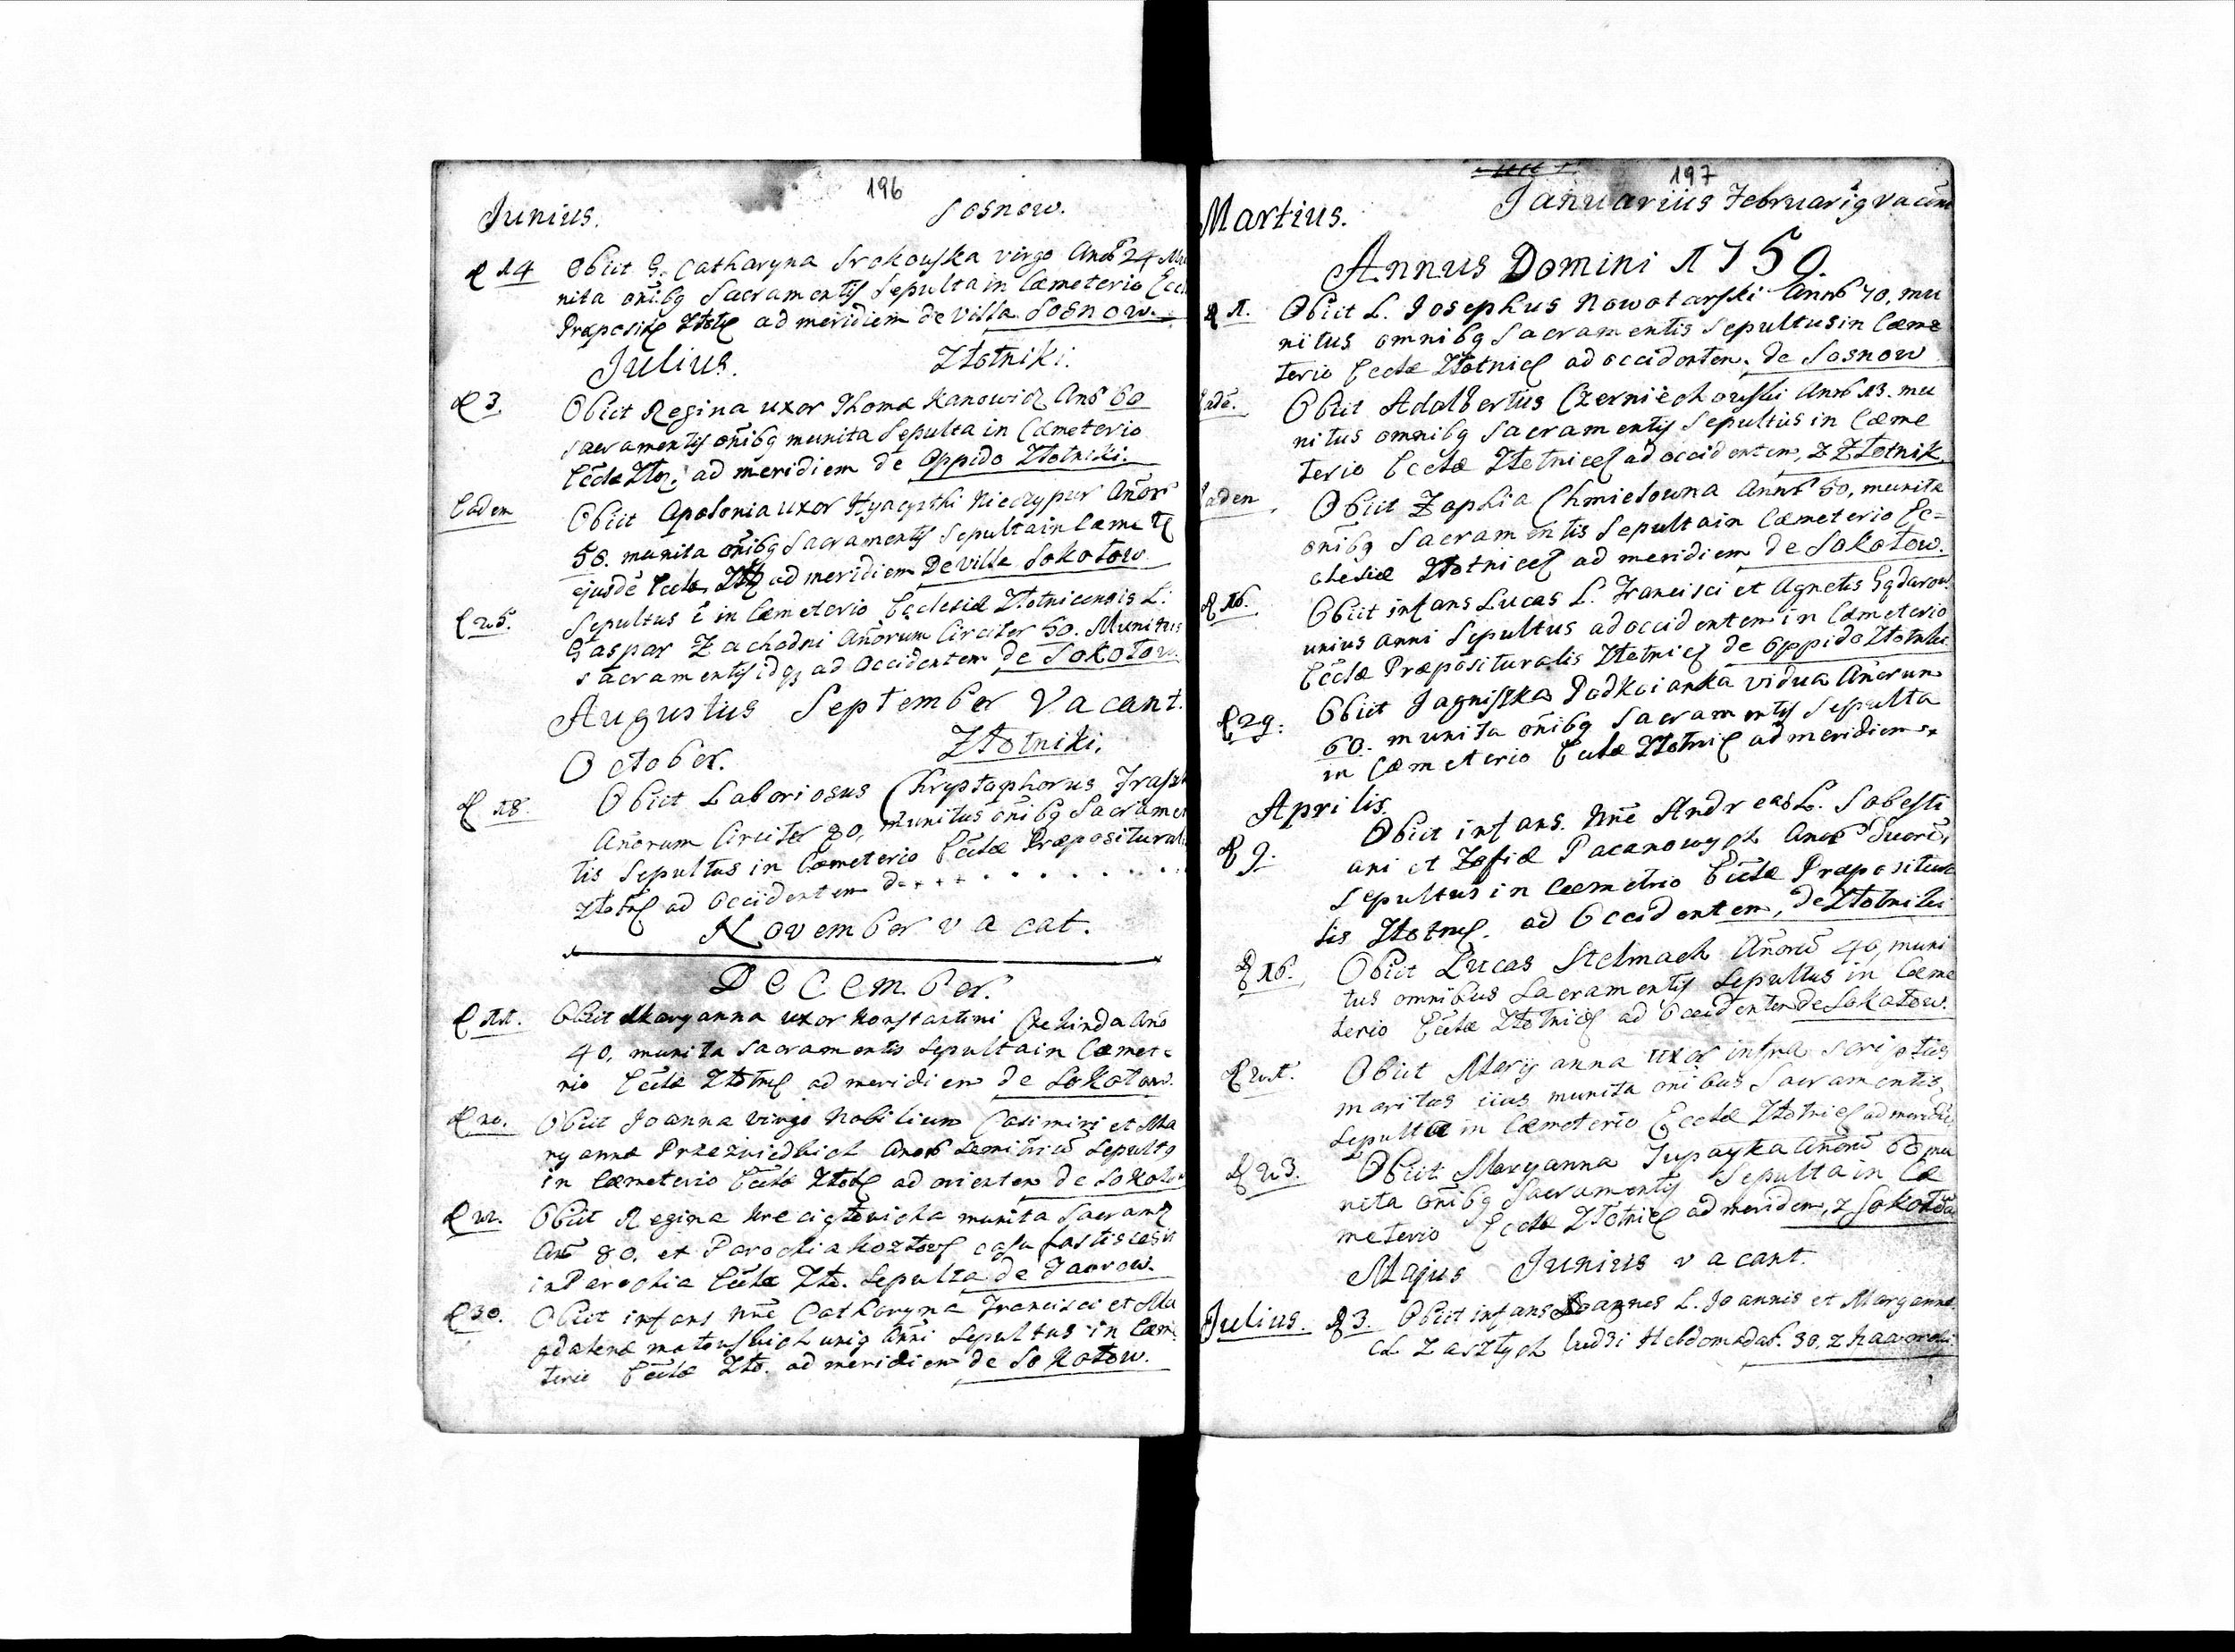 196
Junius. Sosnow.
d 14 Obiit G. Catharyna Srokouska virgo Anor 24 Mu
nita oñibq Sacramentis Sepulta in Cæmeterio Eccl
Præposit Złotc ad meridiem de villa Sosnow.
Julius. Złotniki.
d 3. Obiit Regina uxor Thomæ Kanowicz Anor 60
sacramentis oñibq munita Sepulta in Cæmeterio
Eccłæ Złoc. ad meridiem de Oppido Złotniki.
Eadem Obiit Apolonia uxor Hyacynthi Nieczypur Añor
58. munita oñibq Sacramentis Sepulta in Cæmete
ejusdē Eccłæ ad meridiem De villa Sokołow
d 25. Sepultus ē in Cæmeterio Ecclesiæ Złotnicensis L:
Gaspar Zachodni Añorum Circiter 50. Munitus
sacramentis idq ad Occidentem de Sokołow.
Augustus September Vacant.
October. Złotniki.
d 18. Obiit Laboriosus Chryptophorus
Añorum Circiter 80, munitus oñibq Sacramen
tis Sepultus in Cæmeterio Eccłæ Præpositural
Złotnc ad Occidentem de + + + . . . . . . .
November vacat.
December.
d 11. Obiit Maryanna uxor Konstantini Czekinda Ano
40, munita sacramentis Sepulta in Cæmete
rio Eccłæ Złotnc ad meridiem de Sokołow.
d 20. Obiit Joanna virgo Nobilium Casimiri et Ma
ryannæ Anor Sepulta
in Cæmeterio Eccłæ Złotc ad orientem de Sokołow
d 22. Obiit Regina munita Sacram
Anō 80, et Parochia casu
in Parochia Eccłæ Zło. Sepulta de Jaorow.
d 30. Obiit infans nñe Catharyna Francisci et Ma
gdalenæ uniq añi Sepultus in Cæme
terio Eccłæ Zło. ad meridiem de Sokołow.
197
Martius. Januarius Februariq vacant
Annus Domini 1750.
d 1. Obiit L. Josephus Nowotarski Annor 70, mu
nitus omnibq Sacramentis Sepultus in Cæme
terio Eccłæ Złotnic ad occidentem, de Sosnow
Eadē. Obiit Adalbertus Czerniechouski Annor 13. mu
nitus omnibq Sacramentis Sepultus in Cæme
terio Eccłæ Złotnice ad occidentem, z Złotnik
Eadem Obiit Zophia Chmielouna Annor 50, munita
oñibq Sacramentis Sepulta in Cæmeterio Ec=
clesiæ Złotnice ad meridiem de Sokołow.
d 16. Obiit infans Lucas L. Francisci et Agnetis
unius anni Sepultus ad occidentem in Cæmeterio
Eccłæ Præposituralis Złotnic de Oppido Złotniki
d 29. Obiit Jagniszka Podkoianka vidua Añorum
60. munita oñibq Sacramentis Sepulta
in Cæmeterio Eccłæ Złotnic ad meridiem
Aprilis.
d 9. Obiit infans. Nñe Andreas L. Sobesti
ani et Zofiæ Pacanowych Anor duorū,
Sepultus in Cæmetrio Eccłæ Præpositura
lis Złotnic. ad Occidentem, de Złotniki
d 16. Obiit Lucas Stelmach Añorū 40, muni
tus omnibus Sacramentis Sepultus in Cæme
terio Eccłæ Złotnic ad Occidentem de Sokołow.
d 21. Obiit Maryanna uxor infra scriptus
maritus iius munita oñibus Sacramentis,
Sepulta in Cæmeterio Eccłæ Złotnic ad meridiē
d 23. Obiit Maryanna Añorū 60 mu
nita oñibq Sacramentis Sepulta in Cæ
meterio Eccłæ Złotnic ad meridem, z Sokołowa
Majus Junius vacant.
Julius. d 3. Obiit infans Joannes L. Joannis et Maryannæ
Hebdomadar. 30,